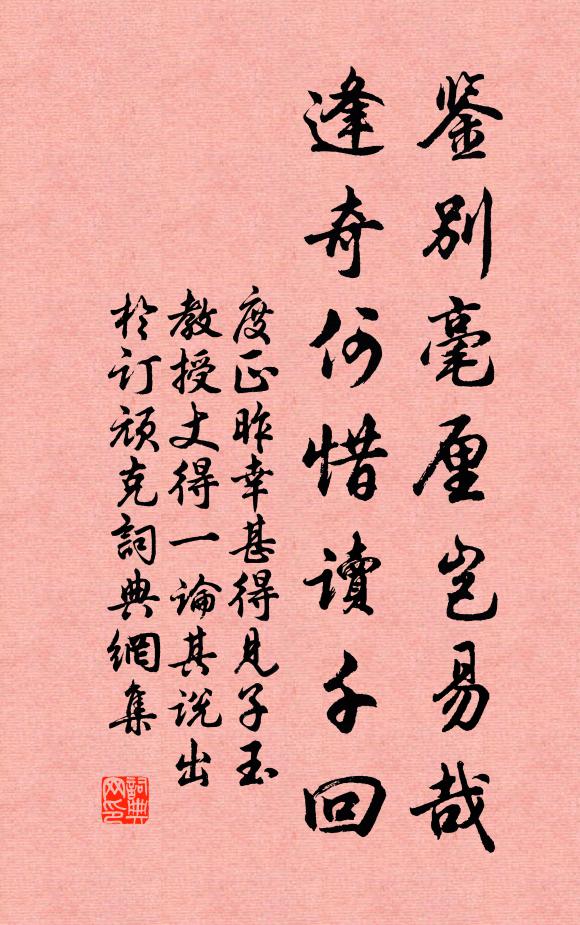 鉴别毫厘岂易哉
逢奇何惜讀千回
度正昨幸甚得見子玉
教授丈得一論其说出
於订顽克詞典網集
詞典网印